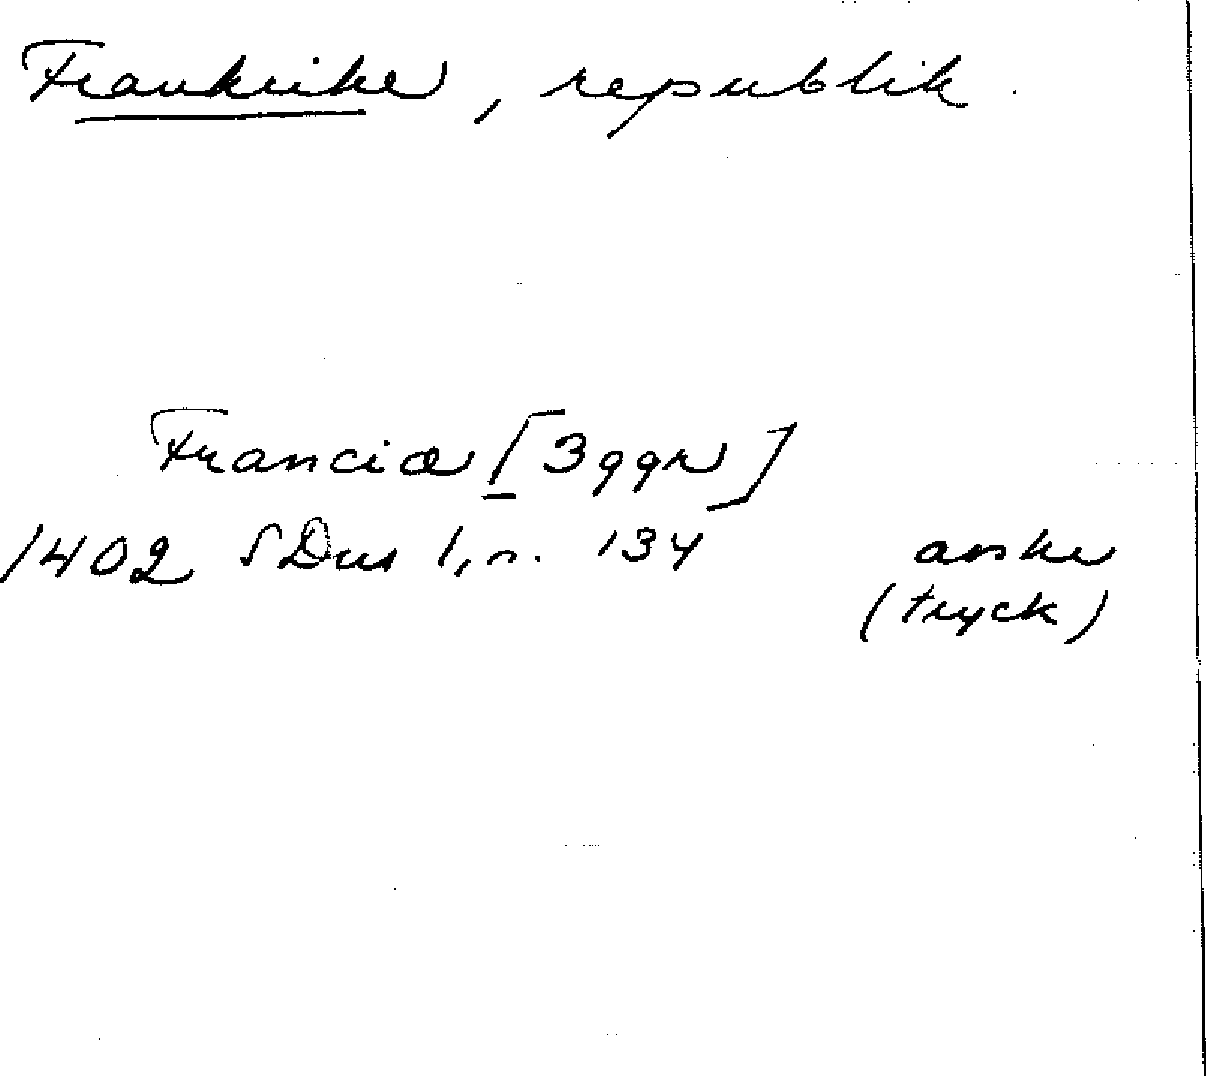 Frankrike, republik.
Francia [3 ggr]
1402 SDns 1, n. 134 avskr
(tryck)